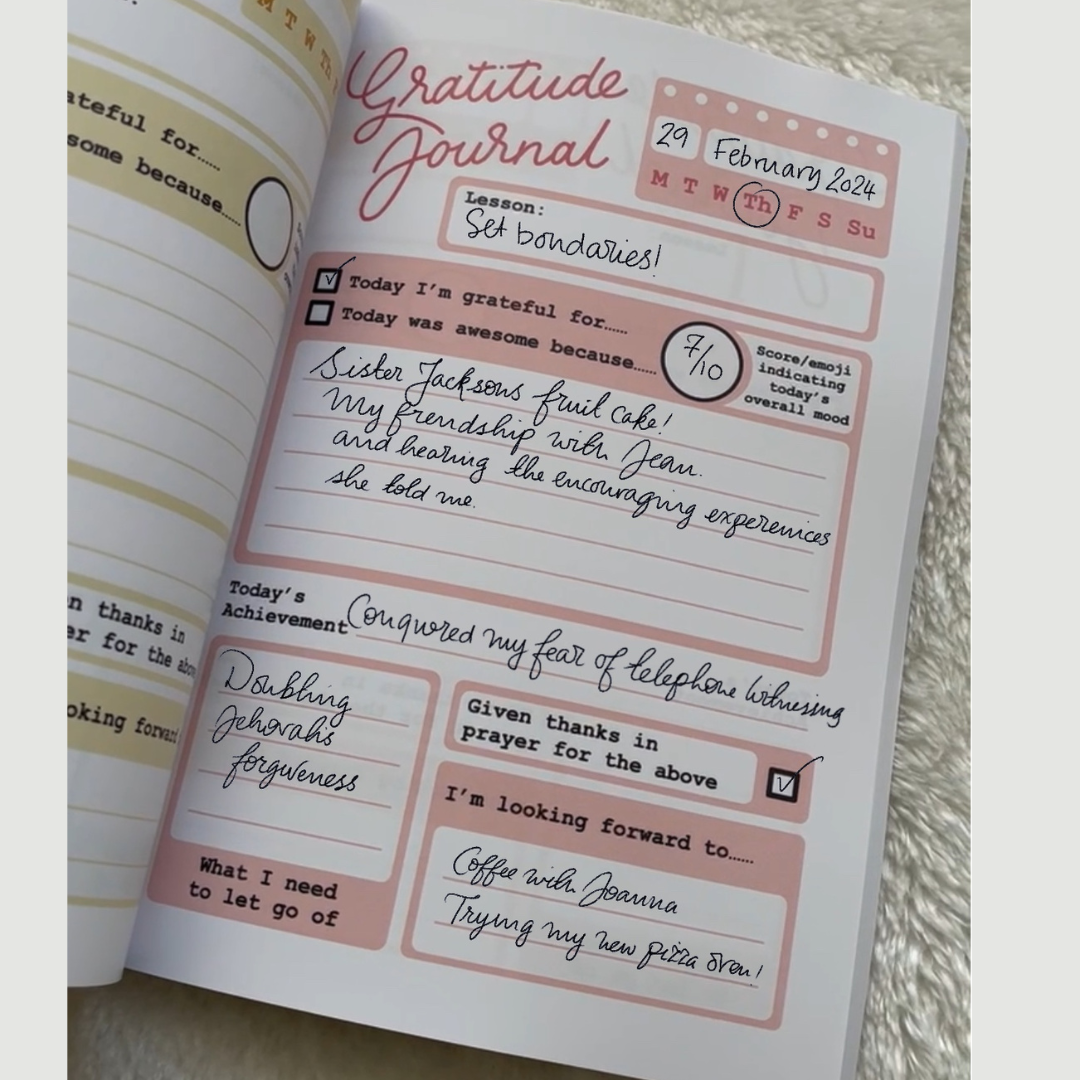 M T W Th
ateful for......
some because......
n thanks in
er for the abo
oking forward
Gratitude
Journal
29 February 2024
M T W Th F S Su
Lesson:
Set bondaries!
Today I'm grateful for......
Today was awesome because......
7/10
Score/emoji
indicating
today's
overall mood
Sister Jacksons fruit cake!
My frendship with Jean.
and hearing the encouraging experenices
she told me.
Today's
Achievement
Conqured my fear of telephone witnessing
Doubting
Jehovah's
forgiveness
What I need
to let go of
Given thanks in
prayer for the above
I'm looking forward to......
Coffee with Joanna
Trying my new pizza oven!